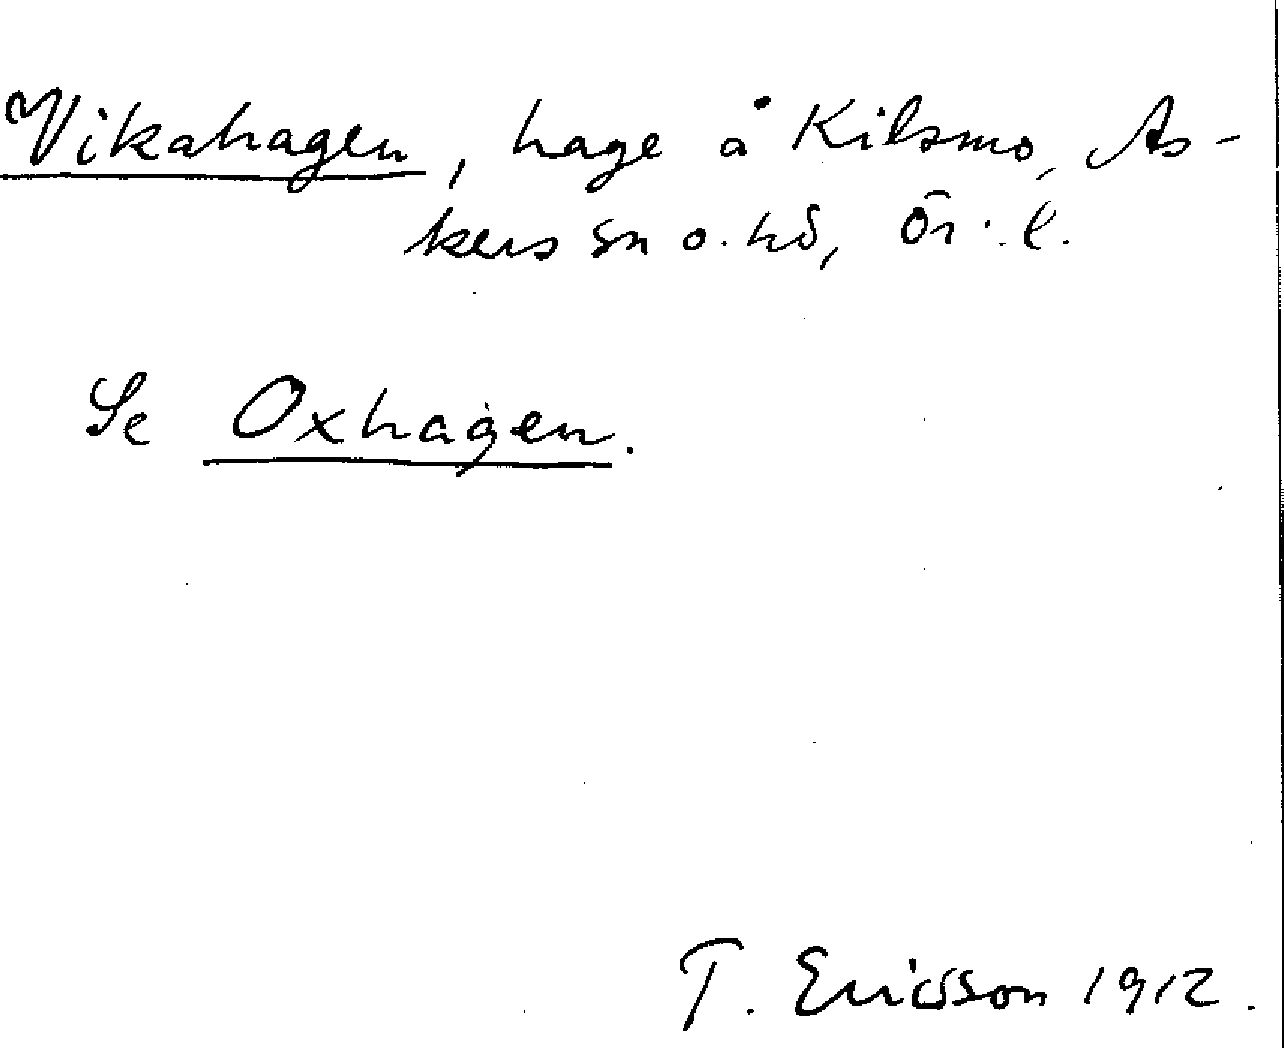 Vikahagen, hage å Kilsmo, As-
kers sn o. hd, Ör. l.
Se Oxhagen.
T. Ericsson 1912.